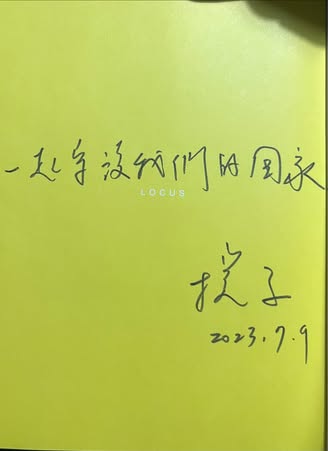 一起守護我們的國家
LOCUS
子
2023.7.9